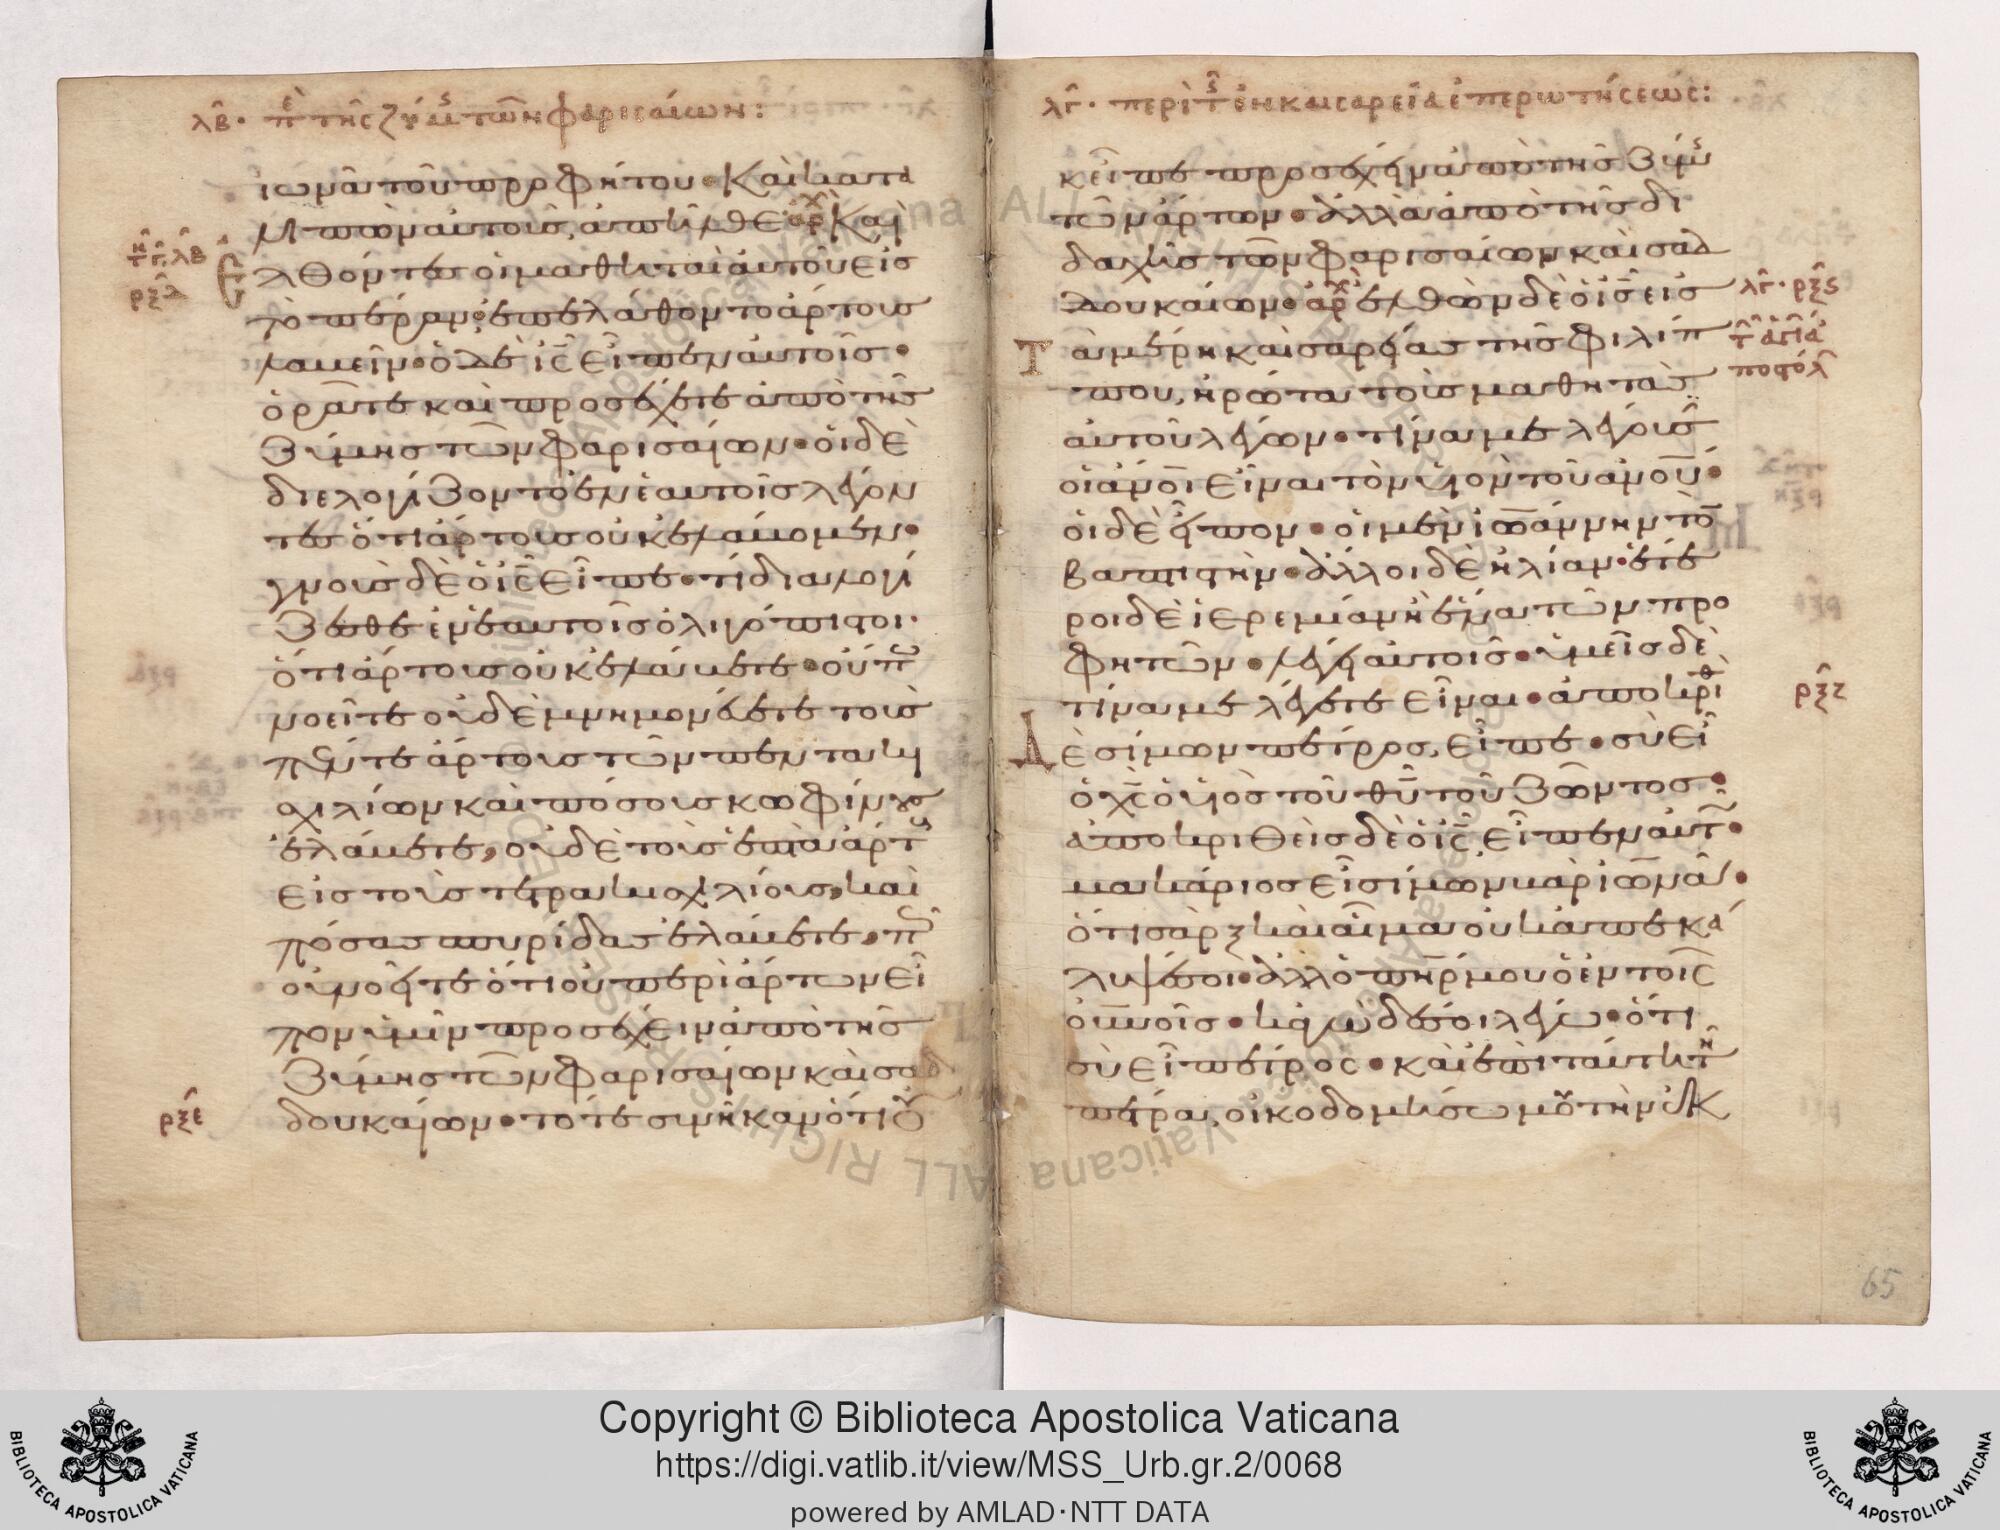 λβ· πε τῆς ζύμης τῶν φαρισαίων:
ἰωνᾶ τοῦ προφήτου· Καὶ κατα
λιπὼν αὐτοὺς, ἀπῆλθεν· ἀρχ Καὶ
ἐλθόντες οἱ μαθηταὶ αὐτοῦ εἰς
τὸ πέραν· ἐπελάθοντο ἄρτους
λαβεῖν· ὁ δὲ ις εἶπεν αὐτοῖς·
ὁρᾶτε καὶ προσέχετε ἀπὸ τῆς
ζύμης τῶν φαρισαίων· οἱ δὲ
διελογίζοντο ἐν ἑαυτοῖς λέγον
τες ὅτι ἄρτους οὐκ ἐλάβομεν·
γνοὺς δὲ ὁ ις εἶπε· τί διαλογί
ζεσθε ἐν ἑαυτοῖς ὀλιγόπιστοι·
ὅτι ἄρτους οὐκ ἐλάβετε· οὔπω
νοεῖτε οὐδὲ μνημονεύετε τοὺς
πέντε ἄρτους τῶν πεντακι
σχιλίων καὶ πόσους κοφίνους
ἐλάβετε, οὐδὲ τοὺς ἑπτὰ ἄρτους
εἰς τοὺς τετρακισχιλίους, καὶ
πόσας σπυρίδας ἐλάβετε, πῶς
οὐ νοεῖτε ὅτι οὐ περὶ ἄρτων εἶ
πον ὑμῖν προσέχειν ἀπὸ τῆς
ζύμης τῶν φαρισαίων καὶ σαδ
δουκαίων· τότε συνῆκαν ὅτι οὐκ
ρξε
λγ· περὶ τῆς ἐν καισαρείᾳ ἐπερωτήσεως:
εἶπε προσέχειν ἀπὸ τῆς ζύμης
τῶν ἄρτων· ἀλλὰ ἀπὸ τῆς δι
δαχῆς τῶν φαρισαίων καὶ σαδ
δουκαίων· ἀρχ ἐλθὼν δὲ ὁ ις εἰς
λγ· ρξς
τὰ μέρη καισαρείας τῆς φιλίπ
που, ἠρώτα τοὺς μαθητὰς
αὐτοῦ λέγων· τίνα με λέγουσιν
οἱ ανοι εἶναι τὸν υἱὸν τοῦ ανου·
οἱ δὲ εἶπον· οἱ μὲν ἰωάννην τὸν
βαπτιστήν· ἄλλοι δὲ ἠλίαν· ἕτε
ροι δὲ ἱερεμίαν ἢ ἕνα τῶν προ
φητῶν· λέγει αὐτοῖς· ὑμεῖς δὲ
τίνα με λέγετε εἶναι· ἀποκριθεὶς
ρξζ
δὲ σίμων πέτρος, εἶπε· σὺ εἶ
ὁ χς ὁ υἱὸς τοῦ θυ τοῦ ζῶντος·
ἀποκριθεὶς δὲ ὁ ις εἶπεν αὐτῷ·
μακάριος εἶ σίμων βὰρ ἰωνᾶ·
ὅτι σὰρξ καὶ αἷμα οὐκ ἀπεκά
λυψέ σοι· ἀλλ' ὁ πηρ μου ὁ ἐν τοῖς
οὐνοῖς· κἀγὼ δέ σοι λέγω· ὅτι
σὺ εἶ πέτρος· καὶ ἐπὶ ταύτῃ τῇ
πέτρᾳ, οἰκοδομήσω μου τὴν ἐκ
65
Copyright © Biblioteca Apostolica Vaticana
https://digi.vatlib.it/view/MSS_Urb.gr.2/0068
powered by AMLAD·NTT DATA
BIBLIOTECA APOSTOLICA VATICANA
BIBLIOTECA APOSTOLICA VATICANA